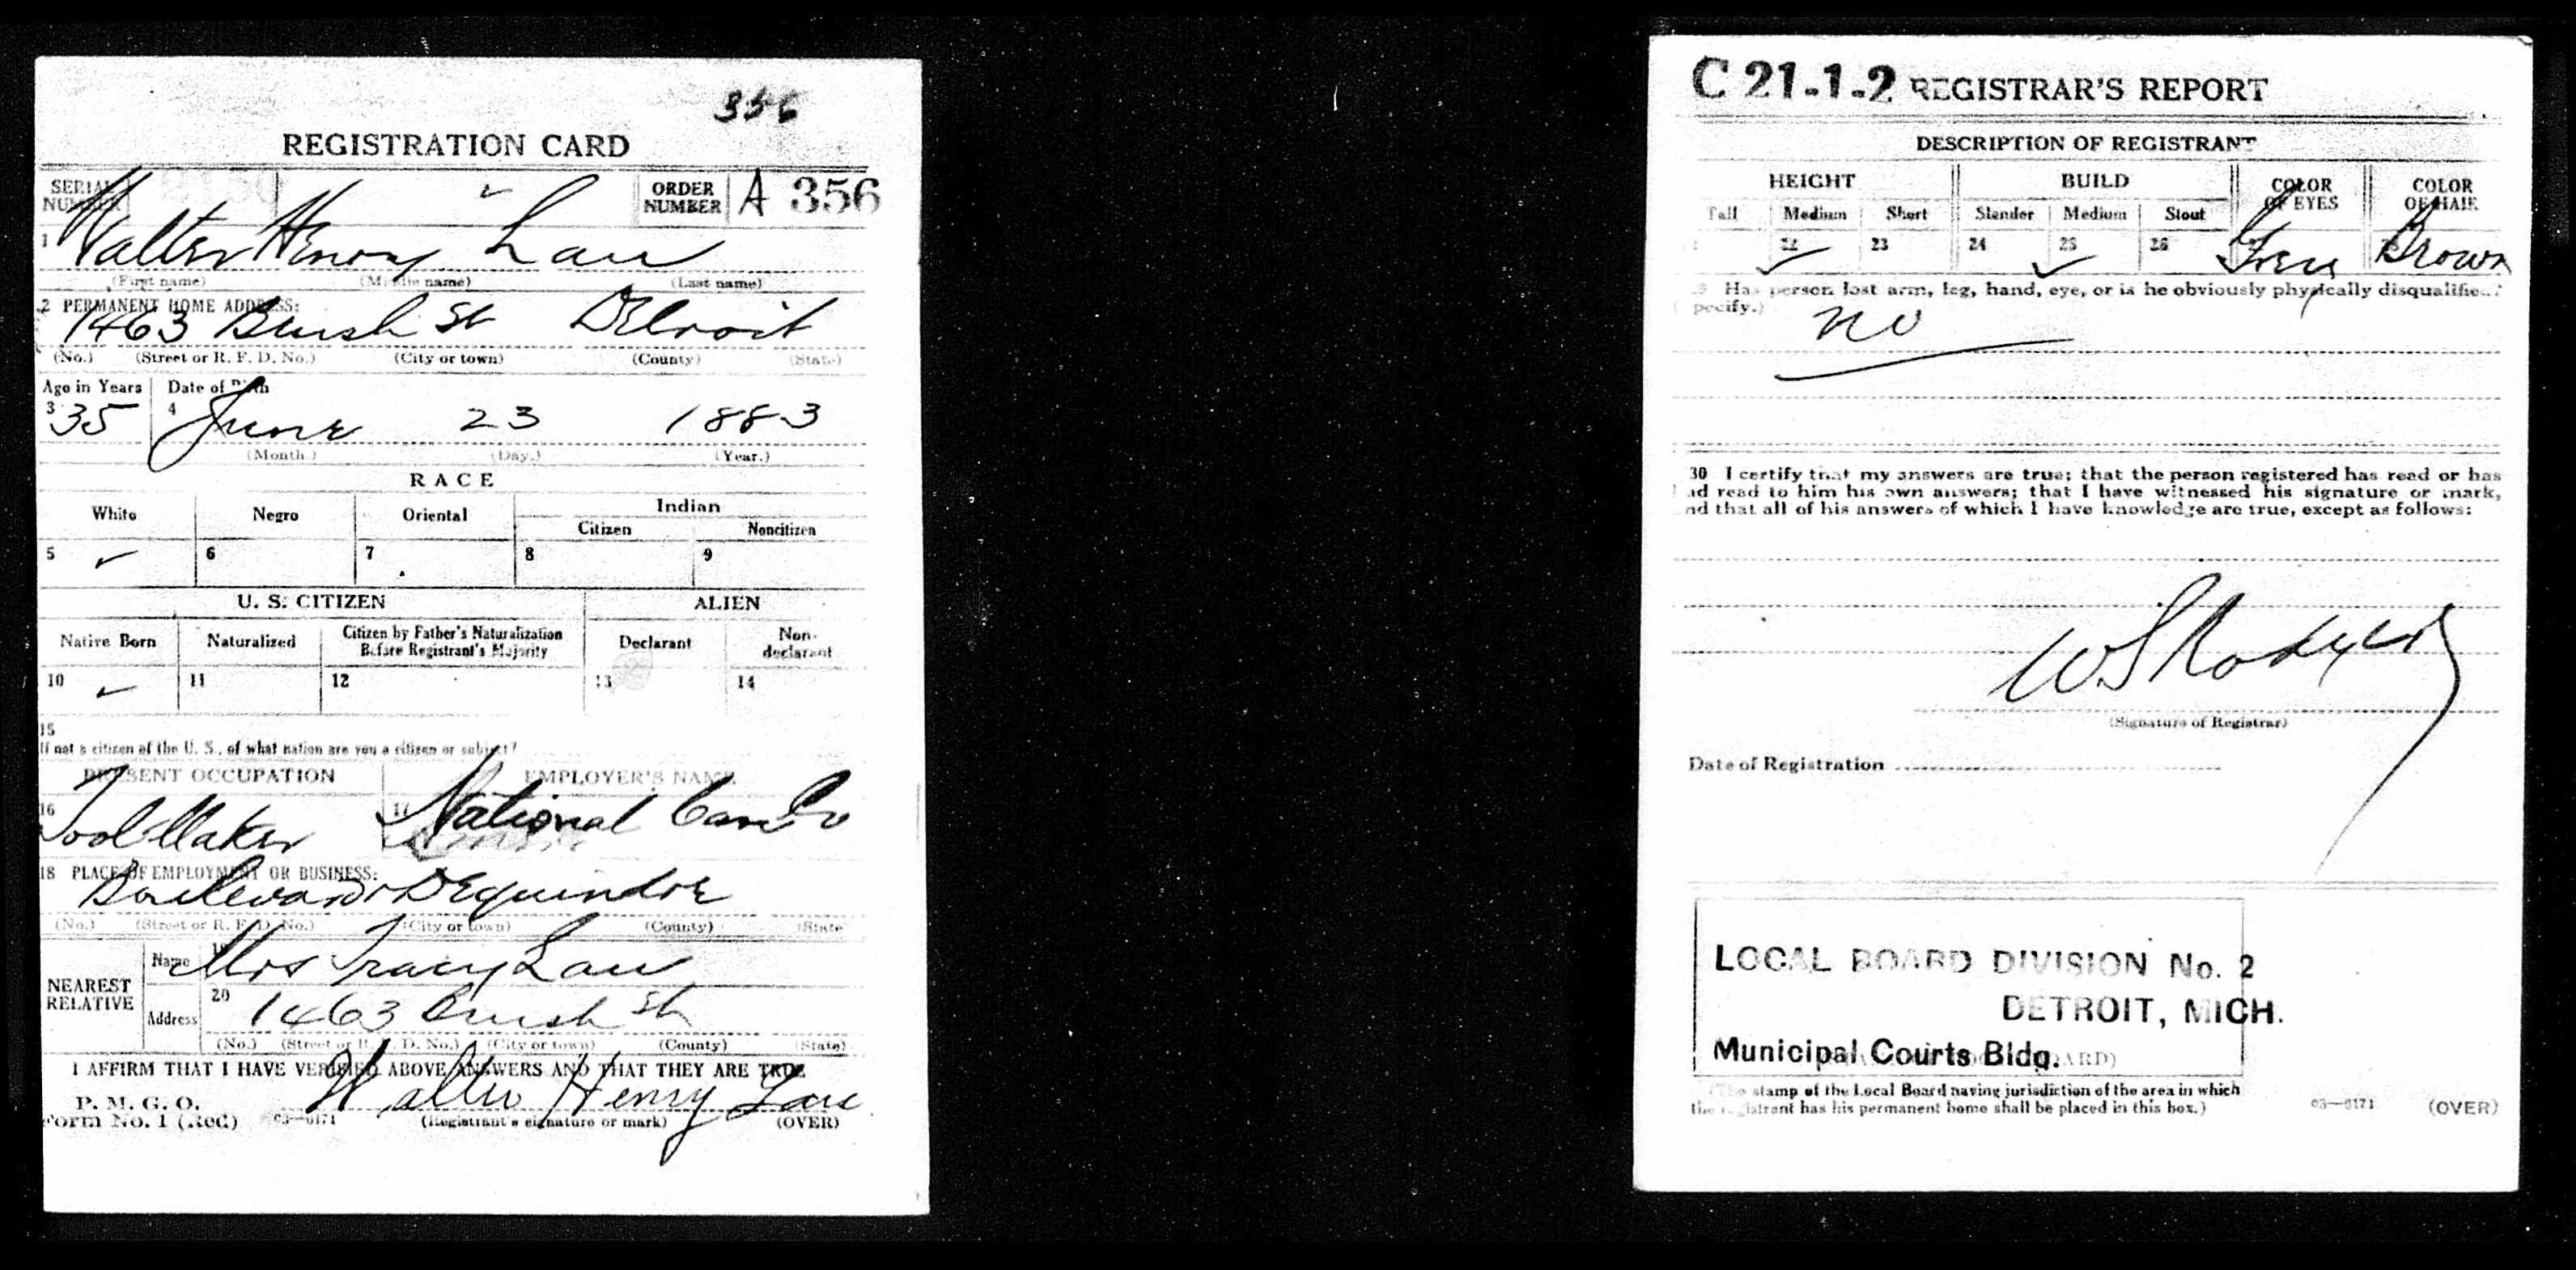 356
REGISTRATION CARD
SERIAL NUMBER
ORDER NUMBER A 356
1 Walter Henry Law
(First name) (Middle name) (Last name)
2 PERMANENT HOME ADDRESS:
1463 Brush St Detroit
(No.) (Street or R. F. D. No.) (City or town) (County) (State)
Age in Years Date of Birth
3 35 4 June 23 1883
(Month.) (Day.) (Year.)
RACE
White Negro Oriental Indian
Citizen Noncitizen
5 ✓ 6 7 8 9
U. S. CITIZEN ALIEN
Native Born Naturalized Citizen by Father's Naturalization Before Registrant's Majority Declarant Non-declarant
10 ✓ 11 12 13 14
15
If not a citizen of the U. S., of what nation are you a citizen or subject?
PRESENT OCCUPATION EMPLOYER'S NAME
16 Tool Maker 17 National Can Co
18 PLACE OF EMPLOYMENT OR BUSINESS:
Boulevard Dequindre
(No.) (Street or R. F. D. No.) (City or town) (County) (State)
NEAREST RELATIVE
Name 19 Mrs Tracy Law
Address 20 1463 Brush St
(No.) (Street or R. F. D. No.) (City or town) (County) (State)
I AFFIRM THAT I HAVE VERIFIED ABOVE ANSWERS AND THAT THEY ARE TRUE
P. M. G. O.
Form No. 1 (Red) 03—6171 Walter Henry Law
(Registrant's signature or mark) (OVER)
C 21-1-2 REGISTRAR'S REPORT
DESCRIPTION OF REGISTRANT
HEIGHT BUILD COLOR OF EYES COLOR OF HAIR
Tall Medium Short Slender Medium Stout
22 ✓ 23 24 25 ✓ 26 Grey Brown
29 Has person lost arm, leg, hand, eye, or is he obviously physically disqualified?
(Specify.) no
30 I certify that my answers are true; that the person registered has read or has
had read to him his own answers; that I have witnessed his signature or mark,
and that all of his answers of which I have knowledge are true, except as follows:
(Signature of Registrar)
Date of Registration
LOCAL BOARD DIVISION No. 2
DETROIT, MICH.
Municipal Courts Bldg.
(The stamp of the Local Board having jurisdiction of the area in which
the registrant has his permanent home shall be placed in this box.)
03—6171 (OVER)